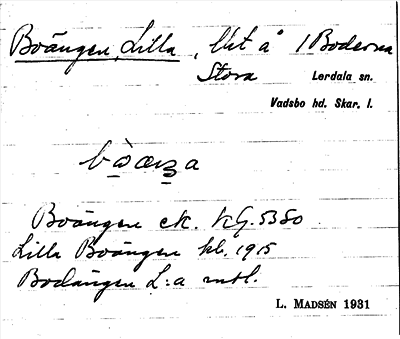 Boängen, Lilla, Ut å / Boderna
Stora Lerdala sn.
Vadsbo hd. Skar. l.
Boängen ek. KG. 5380
Lilla Boängen kl. 1915
Bodängen L:a mtl.
L. MADSÉN 1931